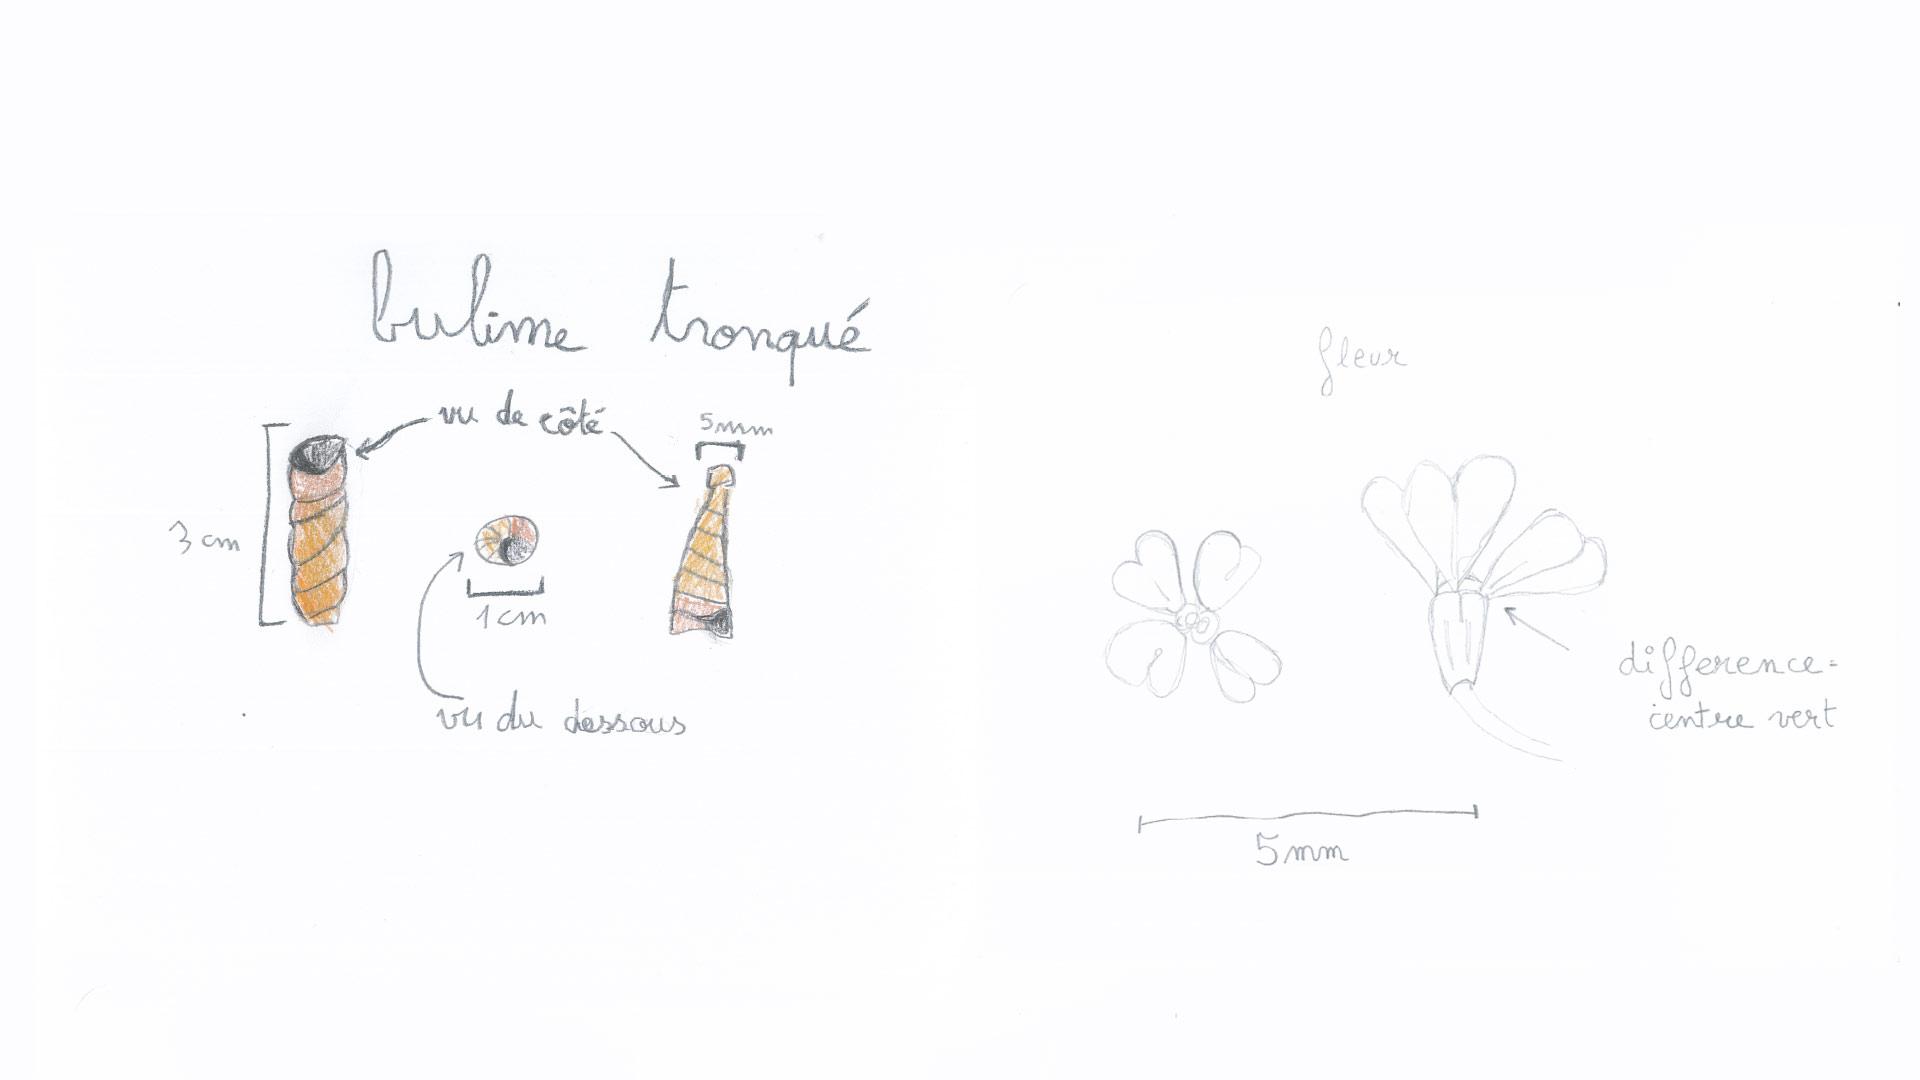 bulime tronqué
vu de côté
5mm
3 cm
1 cm
vu du dessous
fleur
difference =
centre vert
5mm